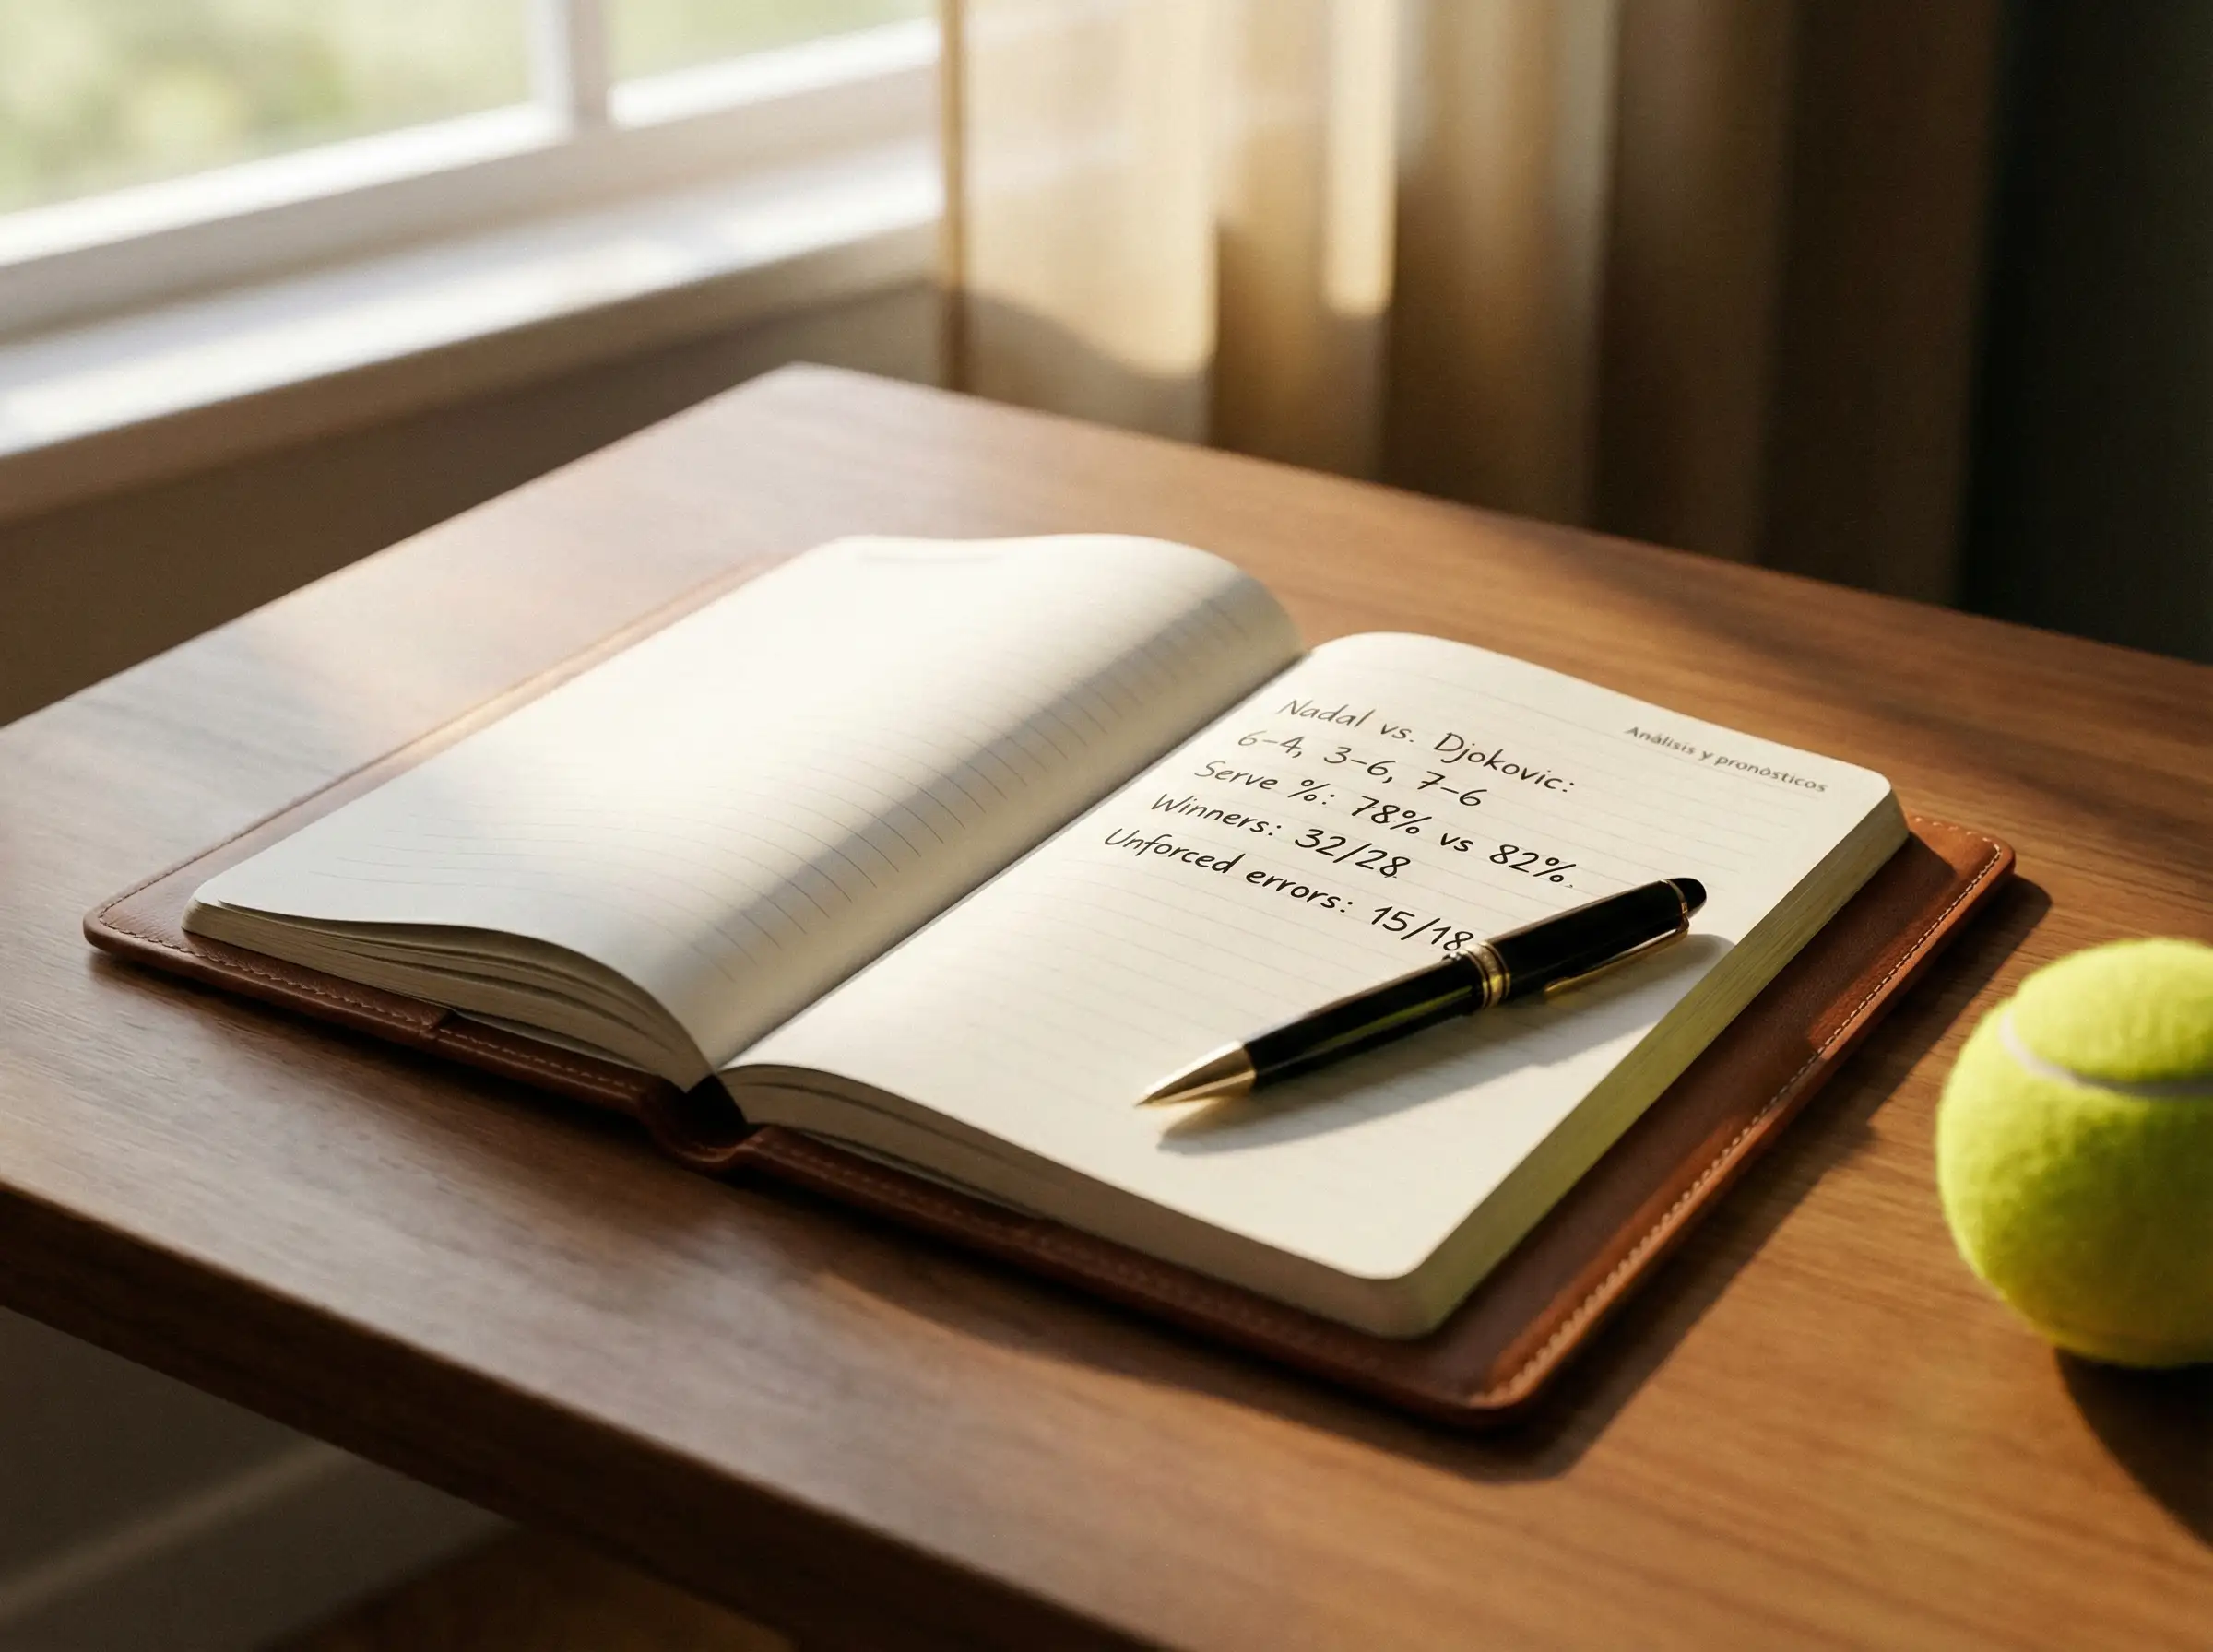 Análisis y pronósticos
Nadal vs. Djokovic:
6-4, 3-6, 7-6
Serve %: 78% vs 82%.
Winners: 32/28
Unforced errors: 15/18